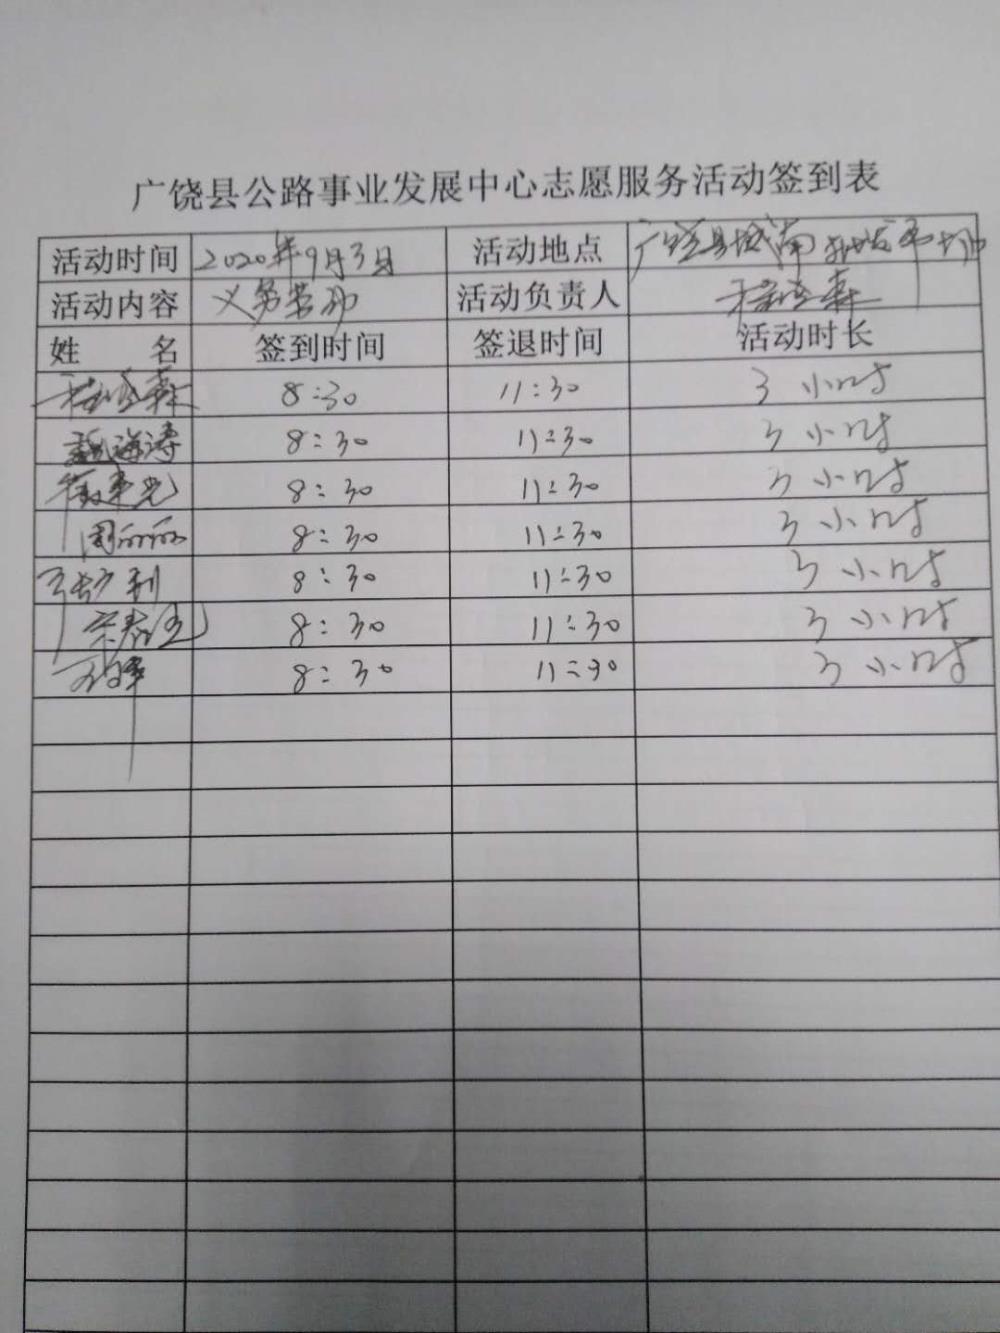 广饶县公路事业发展中心志愿服务活动签到表
活动时间 2020年9月3日 活动地点 广饶县城南批发市场
活动内容 义务劳动 活动负责人
姓名 签到时间 签退时间 活动时长
8:30 11:30 3小时
魏海涛 8:30 11:30 3小时
8:30 11:30 3小时
周丽丽 8:30 11:30 3小时
8:30 11:30 3小时
8:30 11:30 3小时
8:30 11:30 3小时